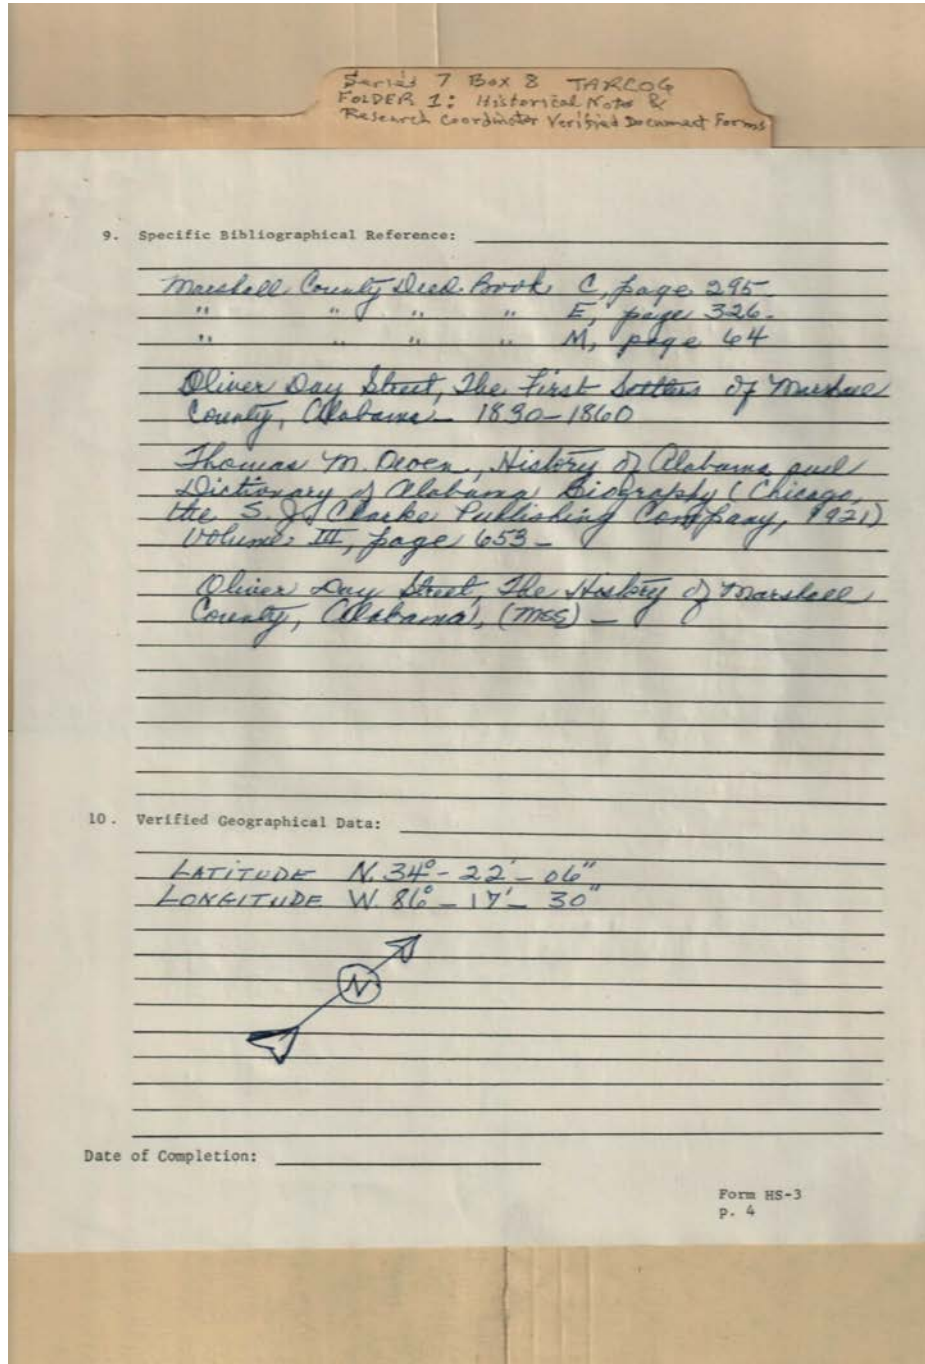 Series 7 Box 8 TARCOG
FOLDER 1: Historical Note &
Research Coordinator Verified Document Forms
9. Specific Bibliographical Reference:
Marshall County Deed Book C, page 295-
" " " " E, page 326-
" " " " M, page 64
Oliver Day Street, The First Settlers of Marshall
County, Alabama - 1830-1860
Thomas M. Owen, History of Alabama and
Dictionary of Alabama Biography (Chicago,
the S. J. Clarke Publishing Company, 1921)
Volume: III, page 653-
Oliver Day Street, The History of Marshall
County, Alabama, (MSS) -
10. Verified Geographical Data:
LATITUDE N. 34° - 22' - 06"
LONGITUDE W. 86° - 17' - 30"
N
Date of Completion:
Form HS-3
p. 4